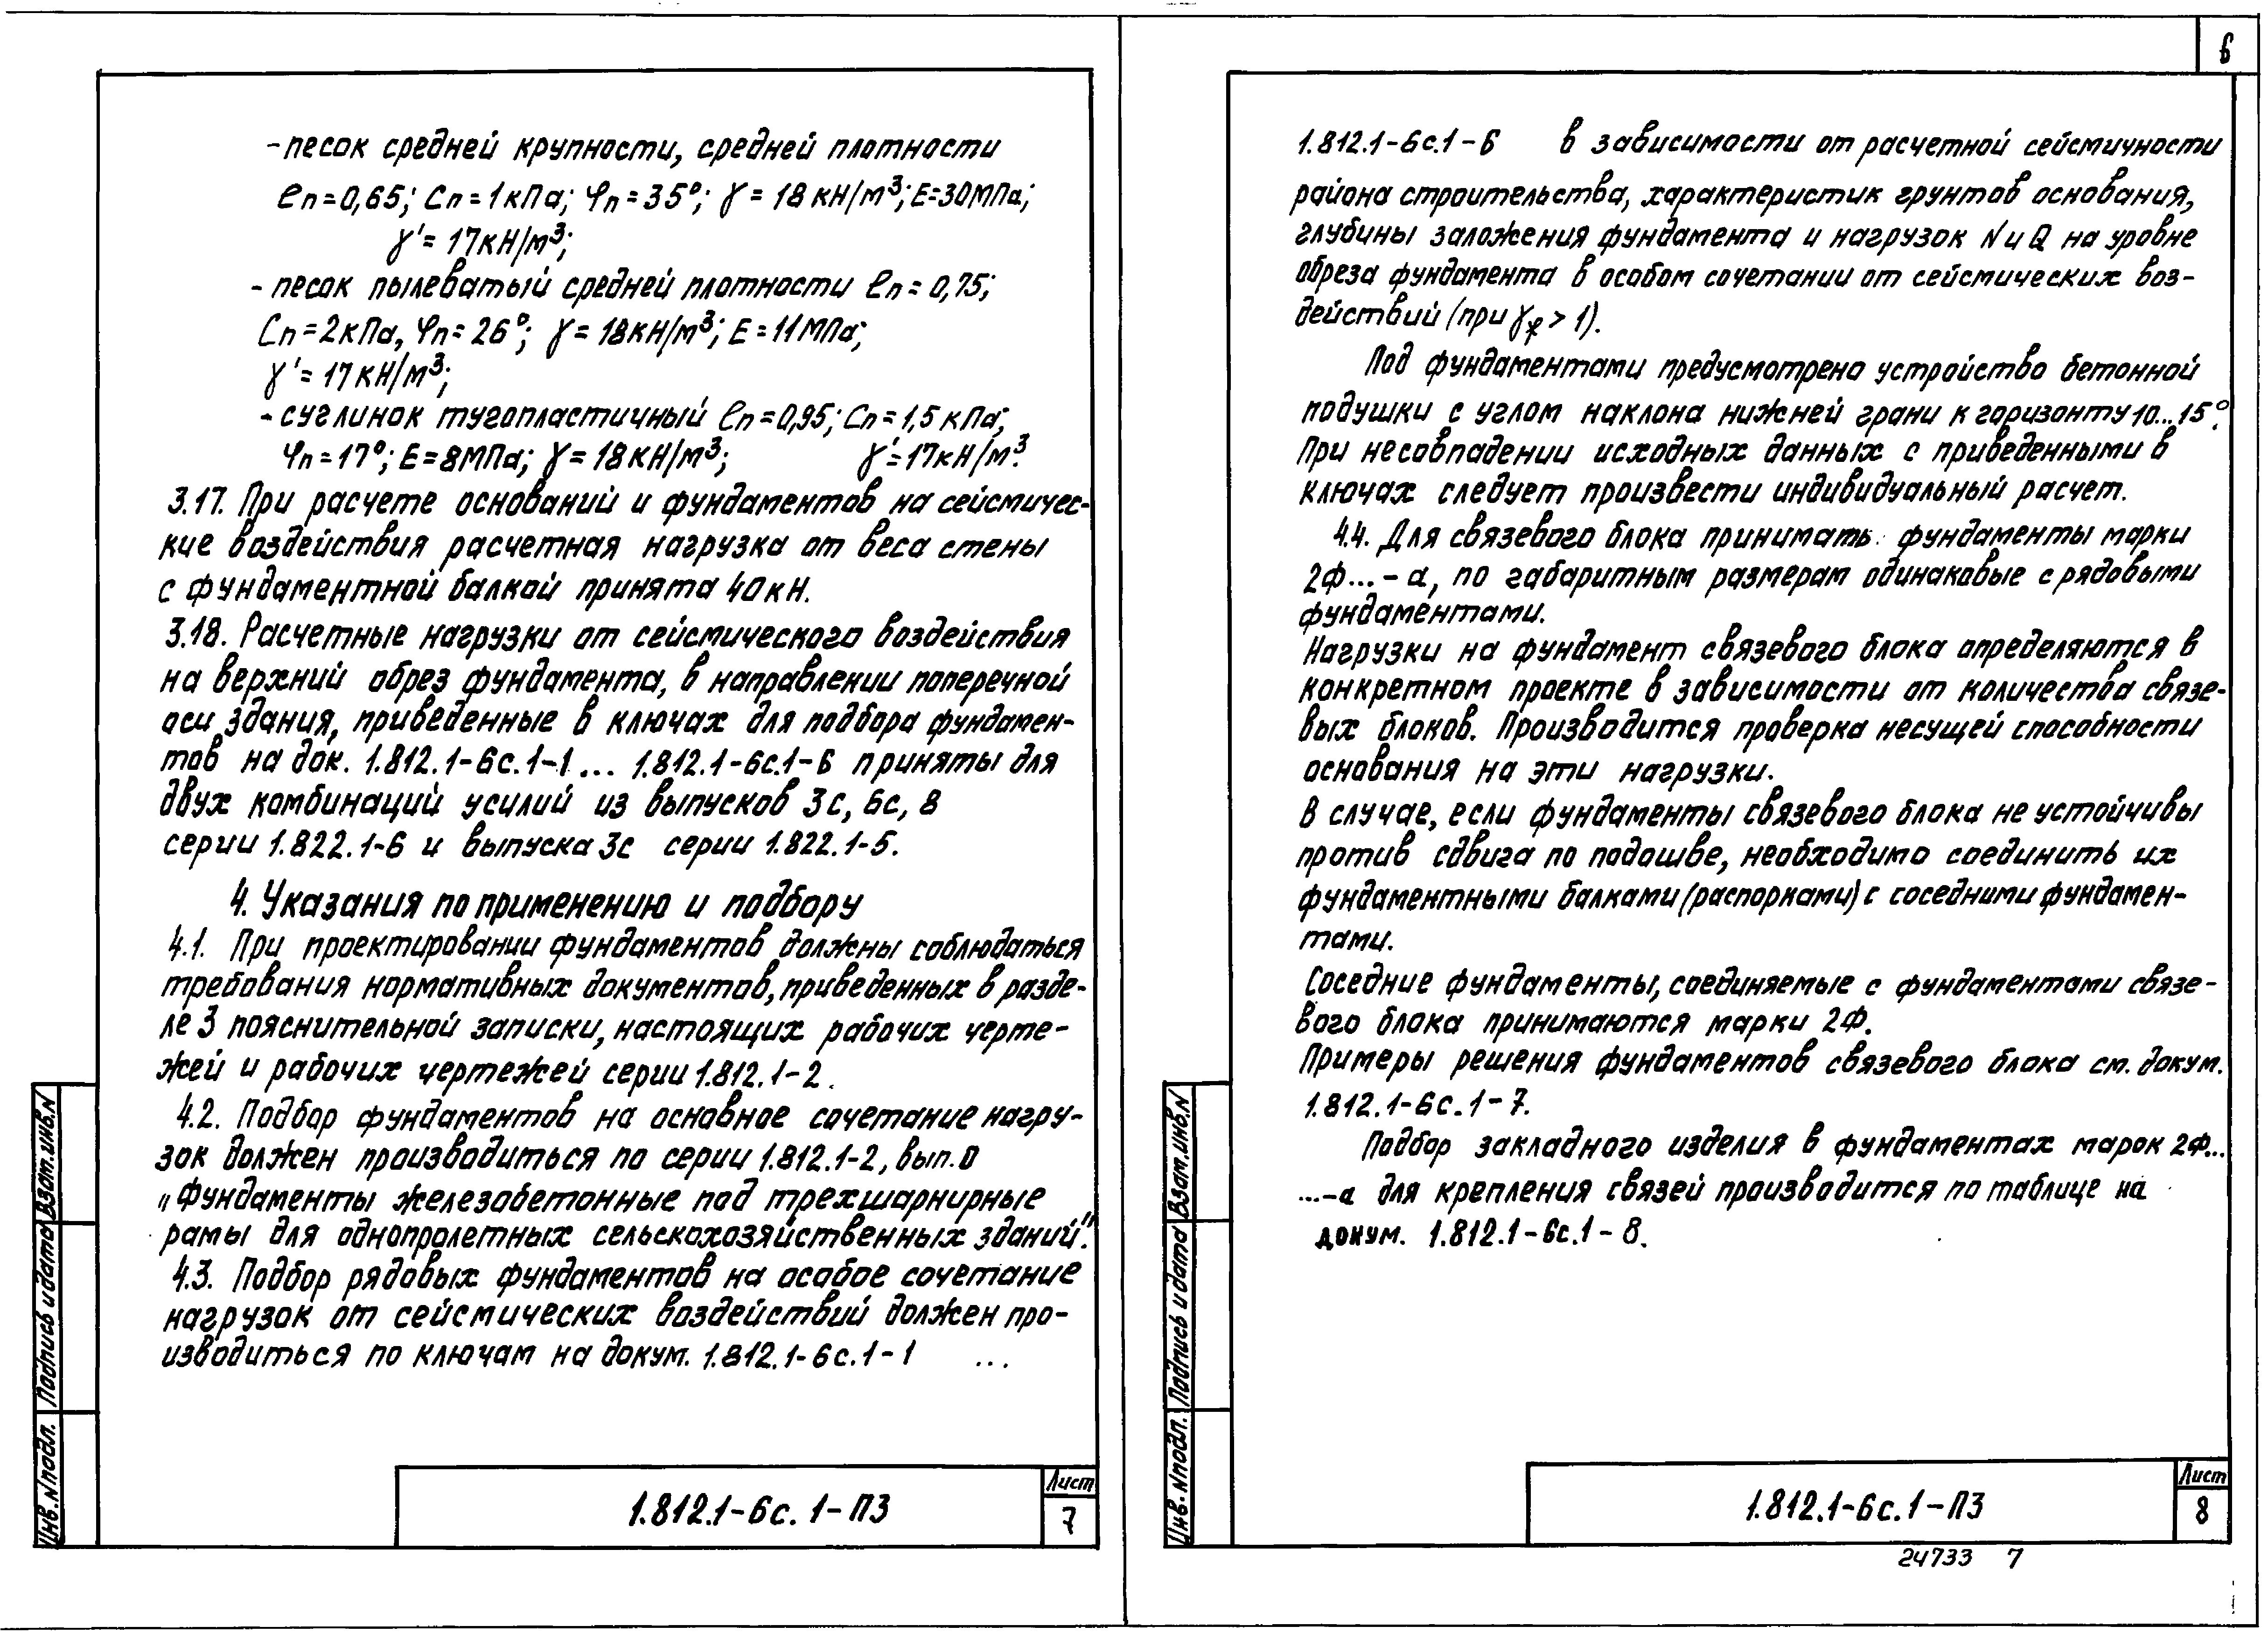 6
-песок средней крупности, средней плотности
eп=0,65; Cп=1кПа; φп=35°; γ=18кН/м³; E=30МПа;
γ'=17кН/м³;
- песок пылеватый средней плотности eп=0,75;
Cп=2кПа, φп=26°; γ=18кН/м³; E=11МПа;
γ'=17кН/м³;
- суглинок тугопластичный eп=0,95; Cп=1,5кПа;
φп=17°; E=8МПа; γ=18кН/м³; γ'=17кН/м³.
3.17. При расчете оснований и фундаментов на сейсмичес-
кие воздействия расчетная нагрузка от веса стены
с фундаментной балкой принята 40кН.
3.18. Расчетные нагрузки от сейсмического воздействия
на верхний обрез фундамента, в направлении поперечной
оси здания, приведенные в ключах для подбора фундамен-
тов на док. 1.812.1-6с.1-1... 1.812.1-6с.1-6 приняты для
двух комбинаций усилий из выпусков 3с, 6с, 8
серии 1.822.1-6 и выпуска 3с серии 1.822.1-5.
4. Указания по применению и подбору
4.1. При проектировании фундаментов должны соблюдаться
требования нормативных документов, приведенных в разде-
ле 3 пояснительной записки, настоящих рабочих черте-
жей и рабочих чертежей серии 1.812.1-2.
4.2. Подбор фундаментов на основное сочетание нагру-
зок должен производиться по серии 1.812.1-2, вып.0
„Фундаменты железобетонные под трехшарнирные
рамы для однопролетных сельскохозяйственных зданий".
4.3. Подбор рядовых фундаментов на особое сочетание
нагрузок от сейсмических воздействий должен про-
изводиться по ключам на докум. 1.812.1-6с.1-1 ...
Инв.№подл. Подпись и дата Взам.инв.№
1.812.1-6с.1-ПЗ
Лист
7
1.812.1-6с.1-6 в зависимости от расчетной сейсмичности
района строительства, характеристик грунтов основания,
глубины заложения фундамента и нагрузок N и Q на уровне
обреза фундамента в особом сочетании от сейсмических воз-
действий (при γf > 1).
Под фундаментами предусмотрено устройство бетонной
подушки с углом наклона нижней грани к горизонту 10...15°.
При несовпадении исходных данных с приведенными в
ключах следует произвести индивидуальный расчет.
4.4. Для связевого блока принимать фундаменты марки
2Ф...-а, по габаритным размерам одинаковые с рядовыми
фундаментами.
Нагрузки на фундамент связевого блока определяются в
конкретном проекте в зависимости от количества связе-
вых блоков. Производится проверка несущей способности
основания на эти нагрузки.
В случае, если фундаменты связевого блока не устойчивы
против сдвига по подошве, необходимо соединить их
фундаментными балками (распорками) с соседними фундамен-
тами.
Соседние фундаменты, соединяемые с фундаментами связе-
вого блока принимаются марки 2Ф.
Примеры решения фундаментов связевого блока см. докум.
1.812.1-6с.1-7.
Подбор закладного изделия в фундаментах марок 2Ф...
...-а для крепления связей производится по таблице на
докум. 1.812.1-6с.1-8.
Инв.№подл. Подпись и дата Взам.инв.№
1.812.1-6с.1-ПЗ
Лист
8
24733 7